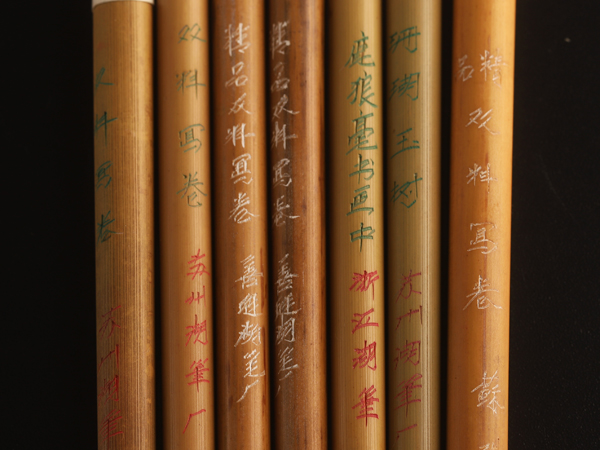 双料写卷
苏州湖笔
双料写卷
苏州湖笔厂
精品双料写卷
善琏湖笔厂
精品双料写卷
善琏湖笔厂
鹿狼毫书画中
浙江湖笔
珊瑚玉树
苏州湖笔厂
精品
双料写卷
蘇